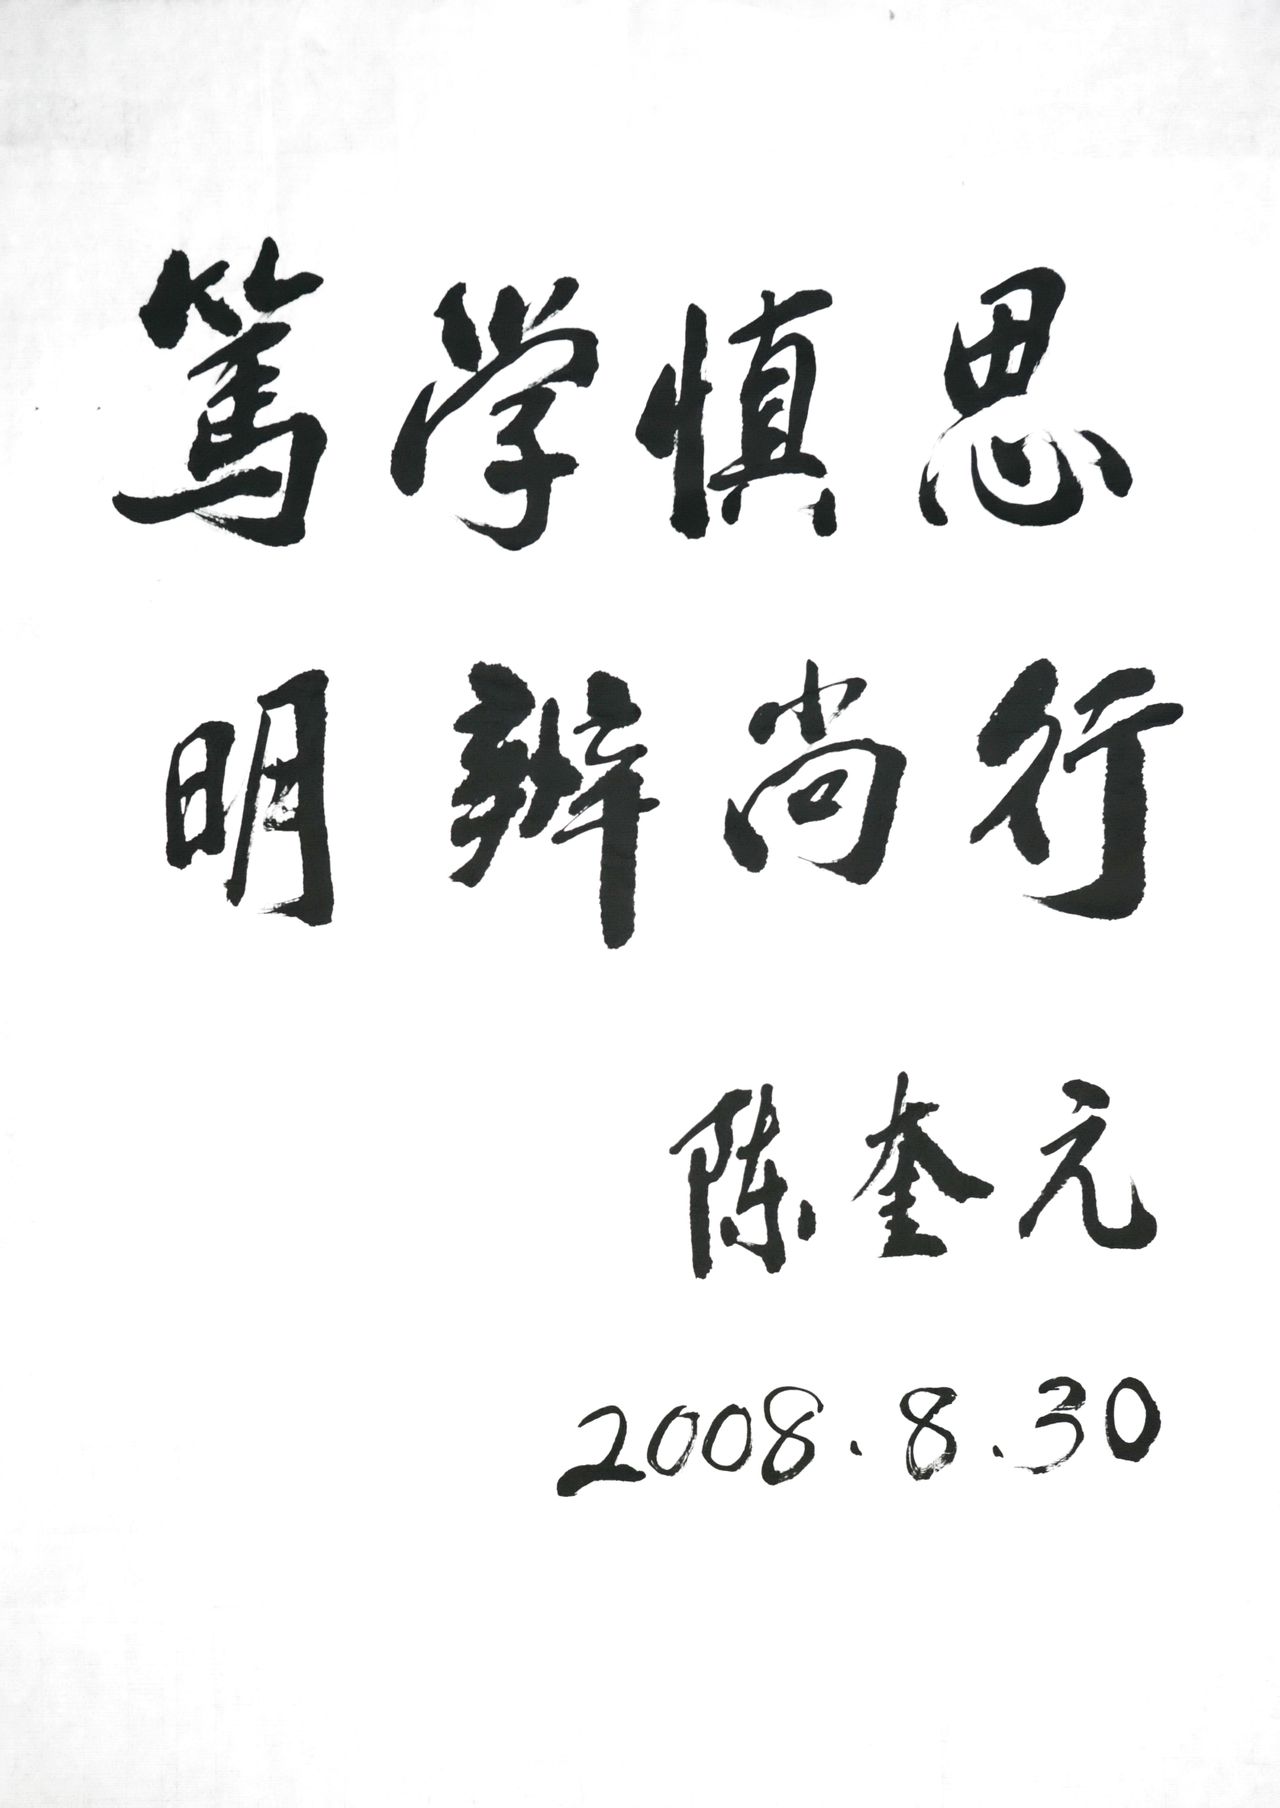 笃学慎思
明辨尚行
陈奎元
2008.8.30